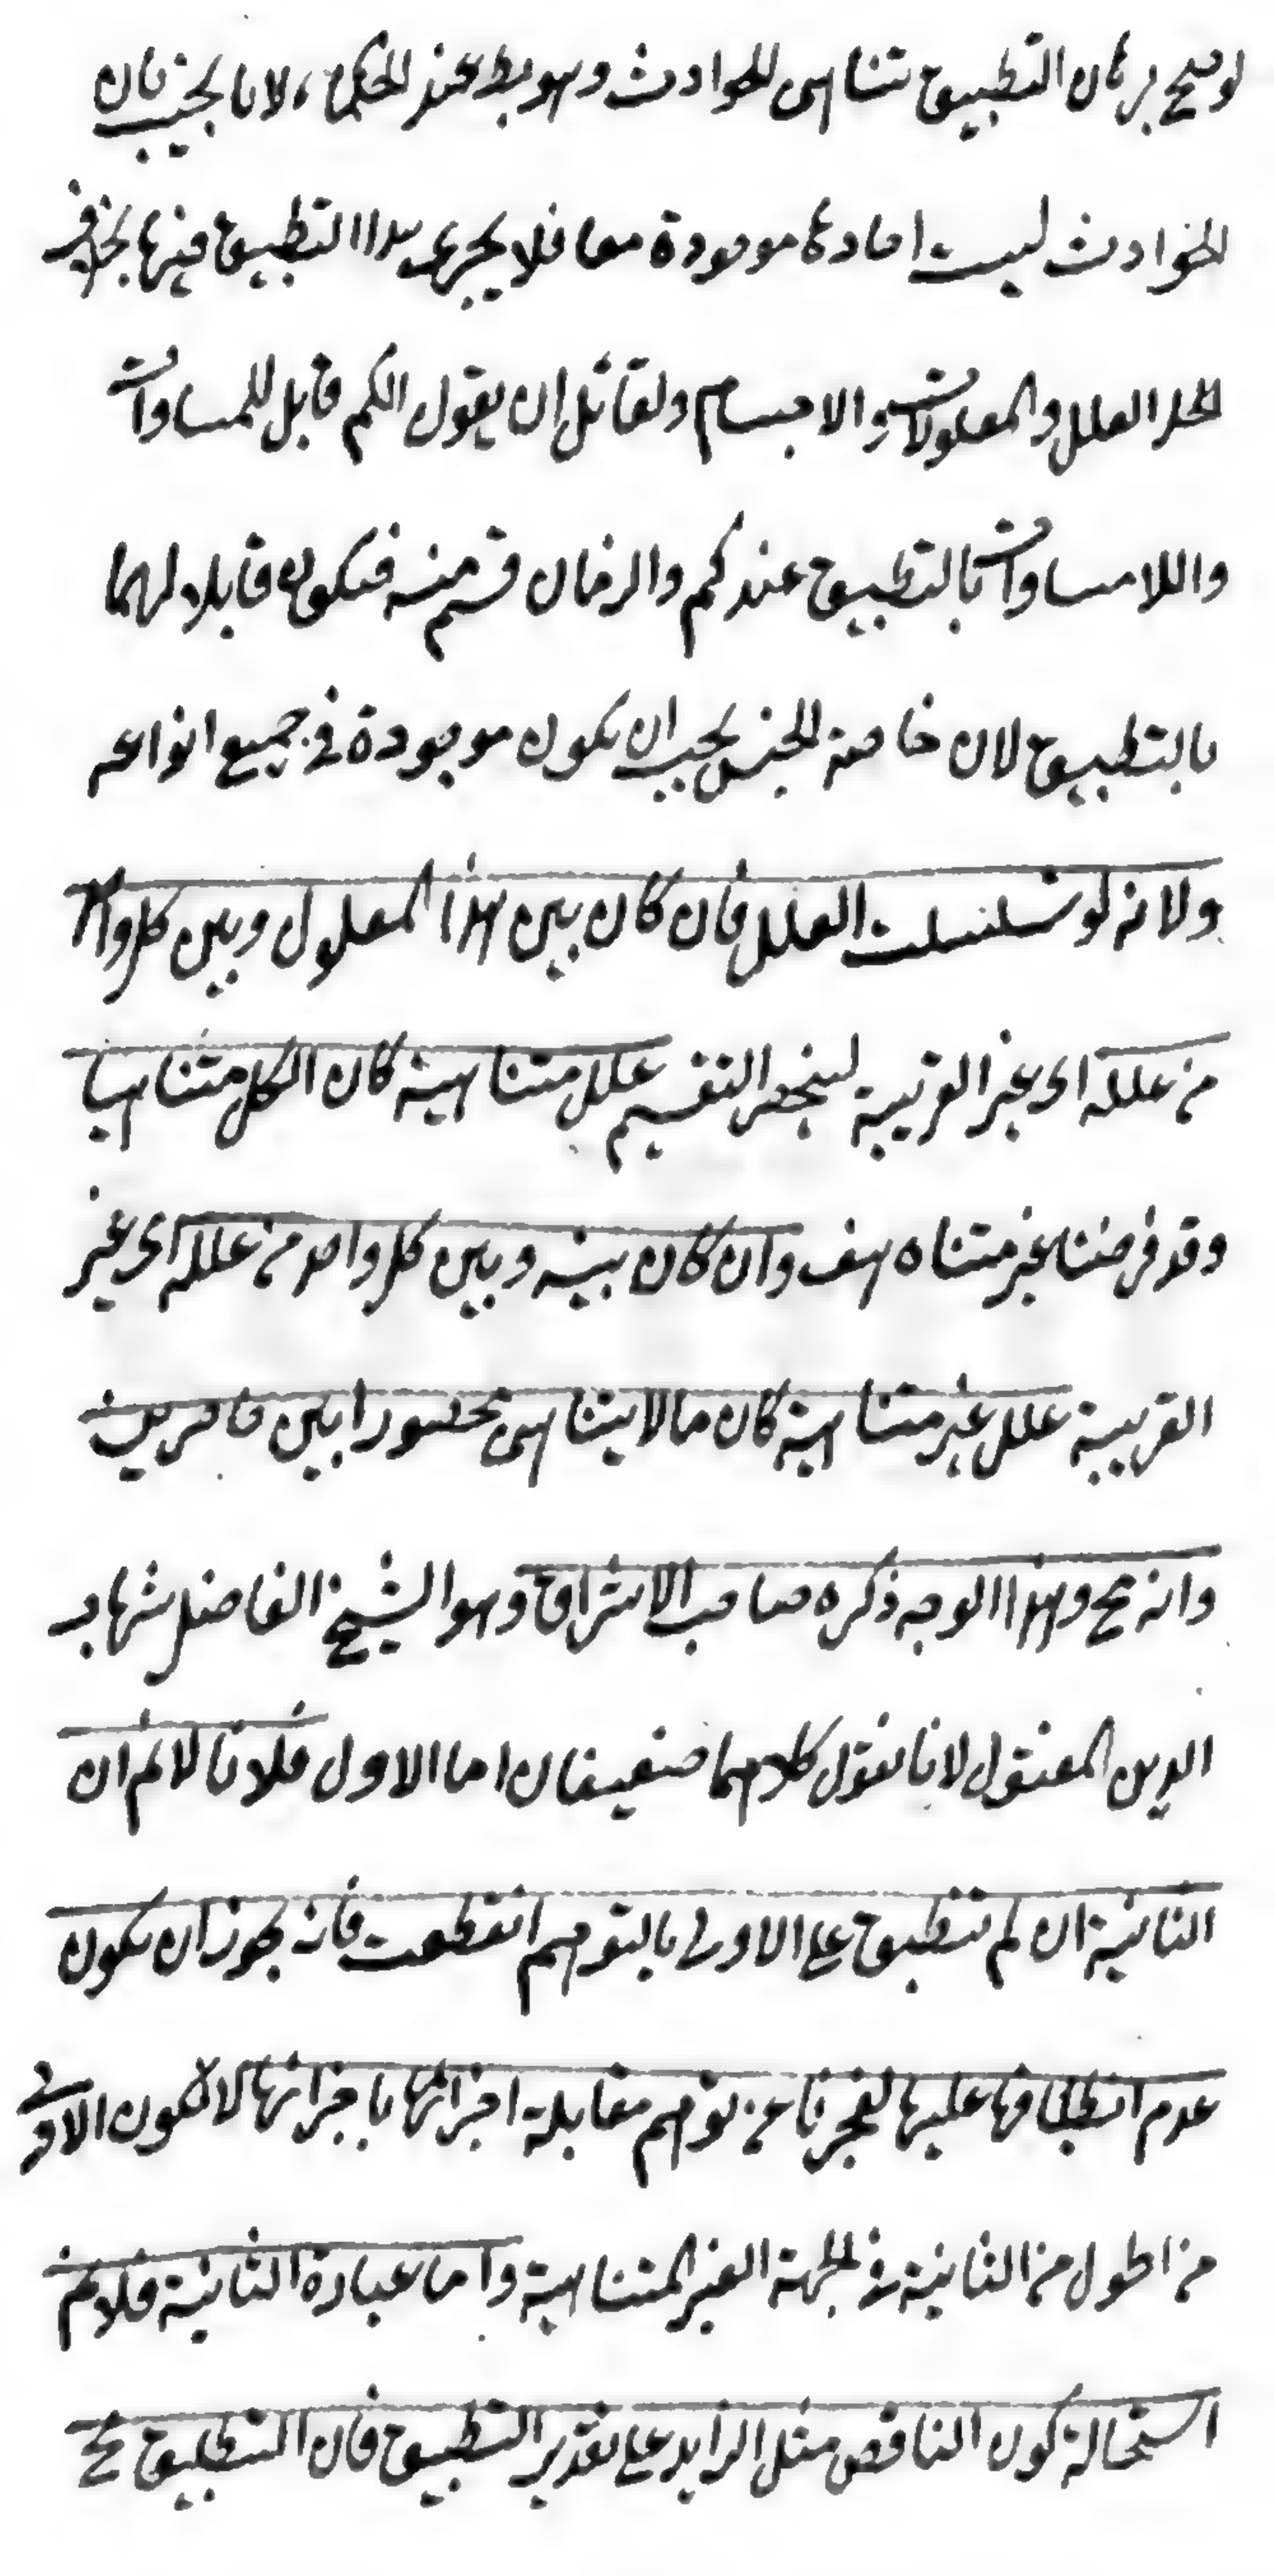 لو صح برهان التطبيق تناهى الحوادث وهو بط عند الحكماء لانا نجيب بان
الحوادث ليست احادها موجودة معا فلا يجرى هذا التطبيق فيها بخلاف
العلل والمعلولات والاجسام ولقائل ان يقول الكم قابل للمساوات
واللامساوات بالتطبيق عندكم والزمان قسم منه فيكون قابلا لهما
بالتطبيق لان خاصة الجنس يجب ان يكون موجودة في جميع انواعه
ولانه لو تسلسلت العلل فان كان بين هذا المعلول وبين كل واحد
من علله اى غير القريبة لينحصر التقسيم علل متناهية كان الكل متناهيا
وقد فرضنا غير متناه هف وان كان بينه وبين كل واحد من علله اى غير
القريبة علل غير متناهية كان مالا يتناهى محصورا بين حاصرين
وانه مح وهذا الوجه ذكره صاحب الاشراق وهو الشيخ الفاضل شهاب
الدين المقتول لانا نقول كلاهما ضعيفان اما الاول فلانا لا نم ان
الثانية ان لم تنطبق على الاولى بالتوهم انقطعت فانه يجوز ان يكون
عدم انطباقها عليها لعجزنا عن توهم مقابلة اجزائها باجزائها لا لكون الاولى
من اطول من الثانية في الجهة الغير المتناهية واما عبارة الثانية فلا نم
استحالة كون الناقص مثل الزايد على تقدير التطبيق فان التطبيق مح